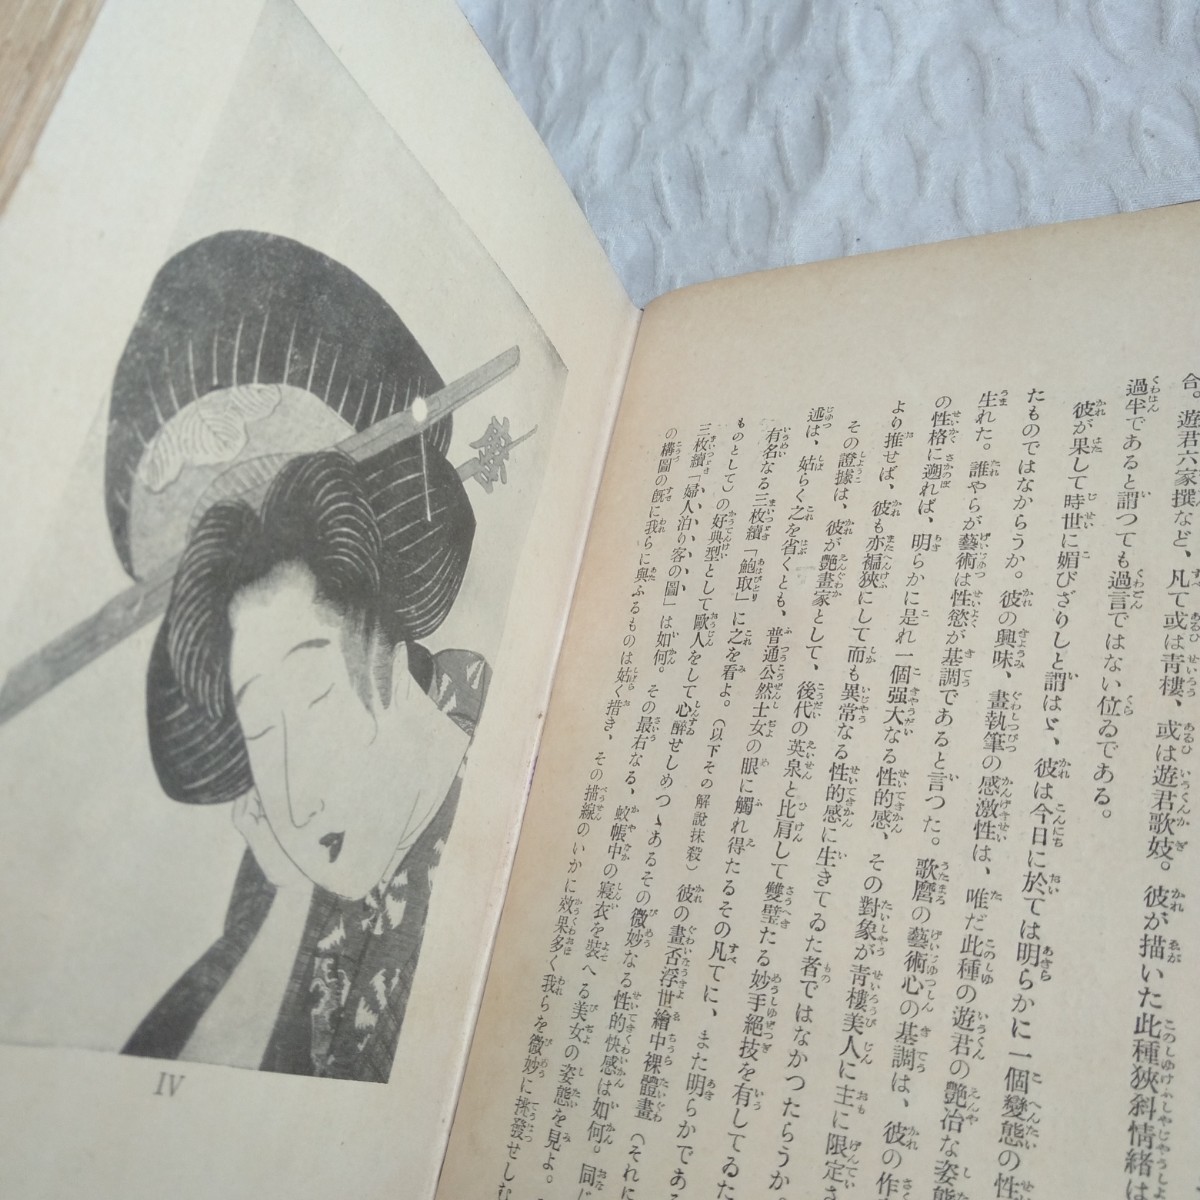 合。遊君六家撰など、凡て或は青樓、或は遊君歌妓。彼が描いた此種狹斜情緒は
過半であると謂つても過言ではない位ゐである。
彼が果して時世に媚びざりしと謂はゞ、彼は今日に於ては明らかに一個變態の性
たものではなからうか。彼の興味、畫執筆の感激性は、唯だ此種の遊君の艶冶な姿態
生れた。誰やらが藝術は性慾が基調であると言つた。歌麿の藝術心の基調は、彼の作
の性格に遡れば、明らかに是れ一個强大なる性的感、その對象が青樓美人に主に限定さ
より推せば、彼も亦褊狹にして而も異常なる性的感に生きてゐた者ではなかつたらうか。
その證據は、彼が艶畫家として、後代の英泉と比肩して雙璧たる妙手絕技を有してゐた
述は、姑らく之を省くとも、普通公然士女の眼に觸れ得たるその凡てに、また明らかであ
有名なる三枚續「鮑取」に之を看よ。(以下その解說抹殺)彼の畫否浮世繪中裸體畫(それに
ものとして)の好典型として歐人をして心醉せしめつゝあるその微妙なる性的快感は如何。同じ
三枚續「婦人泊り客の圖」は如何。その最右なる、蚊帳中の寢衣を裝へる美女の姿態を見よ。
の構圖の旣に我らに與ふるものは姑く措き、その描線のいかに效果多く我らを微妙に挑發せしむ
IV